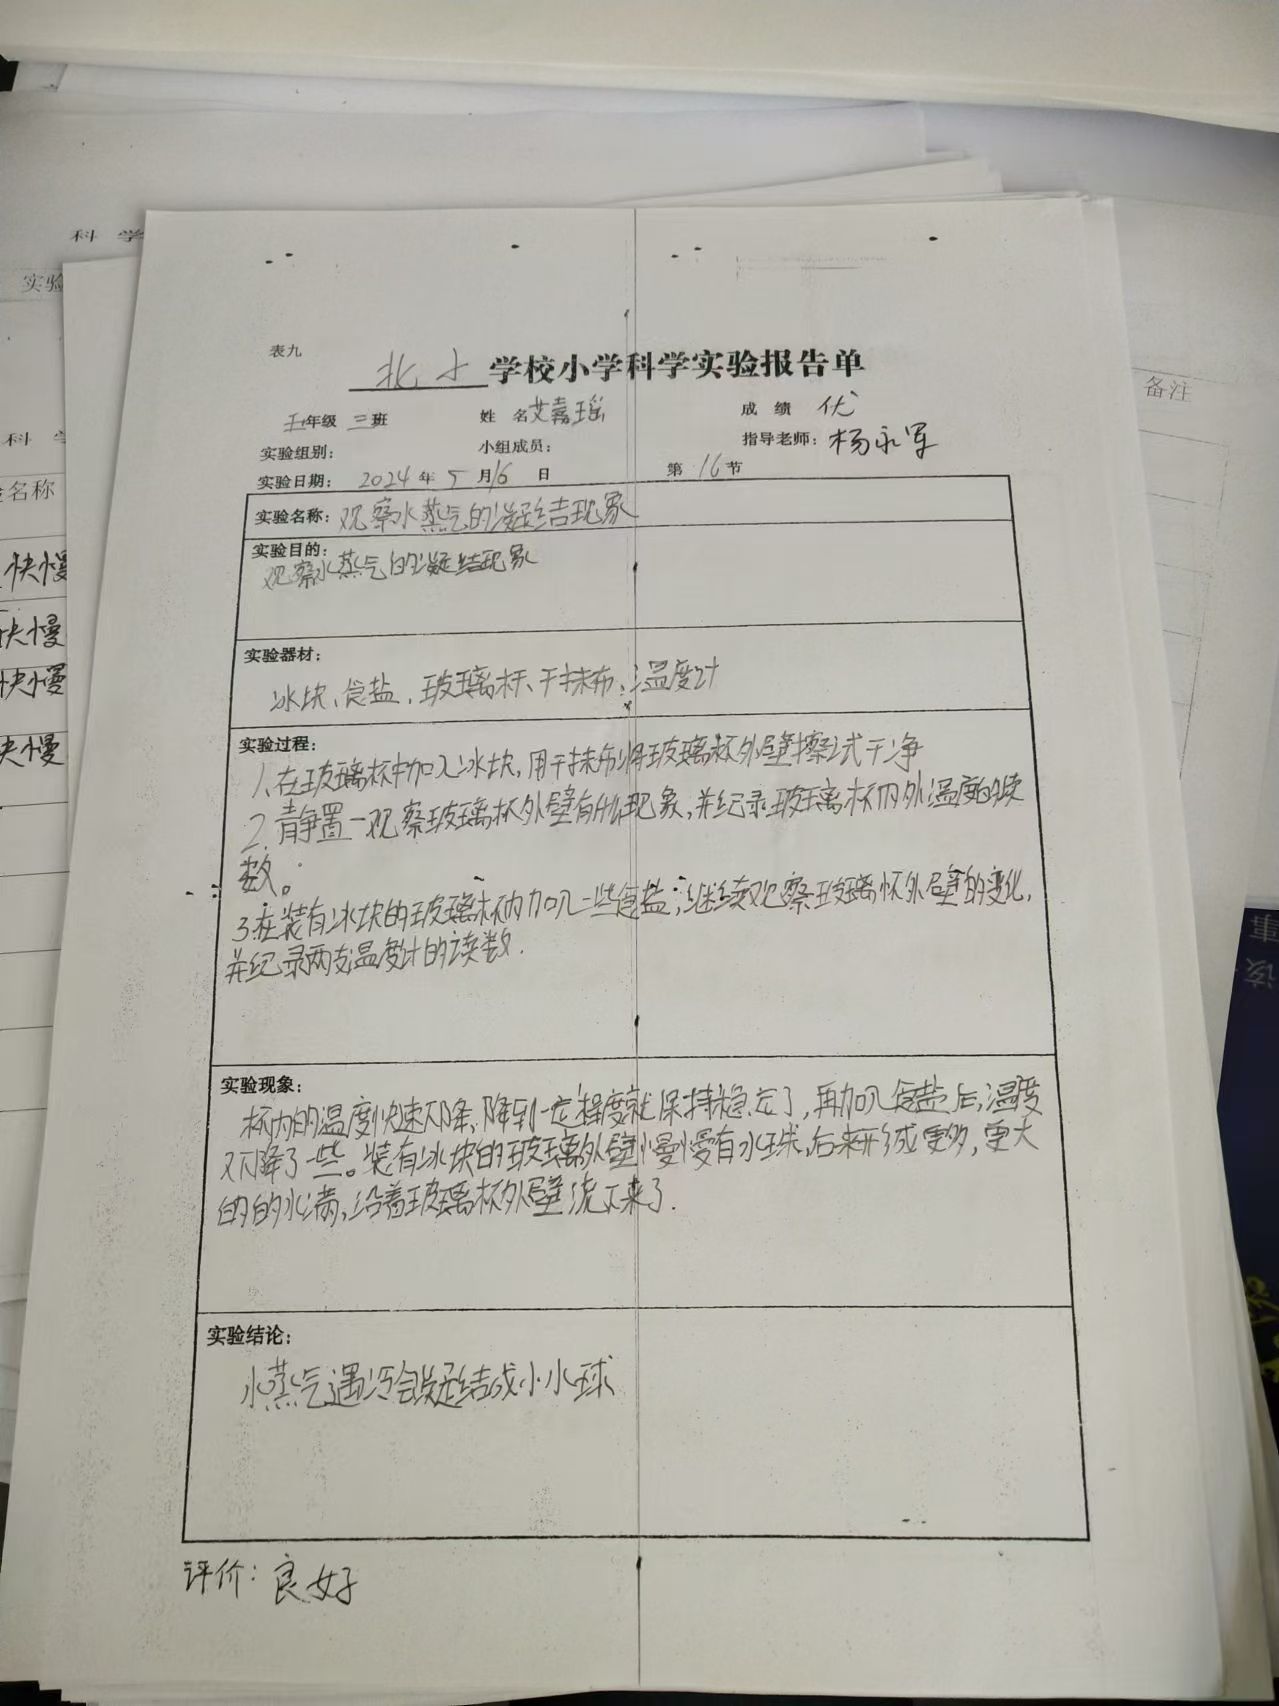 科 学
实验
科 学
名称
快慢
快慢
快慢
快慢
备注
表九
北小学校小学科学实验报告单
五年级 三班 姓 名 艾嘉瑶 成 绩 优
实验组别： 小组成员： 指导老师：杨永军
实验日期： 2024 年 5 月 16 日 第 16 节
实验名称：观察水蒸气的凝结现象
实验目的：
观察水蒸气的凝结现象
实验器材：
冰块、食盐、玻璃杯、干抹布、温度计
实验过程：
1、在玻璃杯中加入冰块，用干抹布将玻璃杯外壁擦试干净
2.静置一观察玻璃杯外壁有什么现象，并纪录玻璃杯内外温度的读
数。
3.在装有冰块的玻璃杯内加入一些食盐；继续观察玻璃杯外壁的变化，
并纪录两支温度计的读数.
实验现象：
杯内的温度快速下降、降到一定程度就保持稳定了，再加入食盐后，温度
又下降了一些。装有冰块的玻璃外壁慢慢有水珠，后来形成更多，更大
的的水滴，沿着玻璃杯外壁流下来了.
实验结论：
水蒸气遇冷会凝结成小水球
评价：良好
事
该